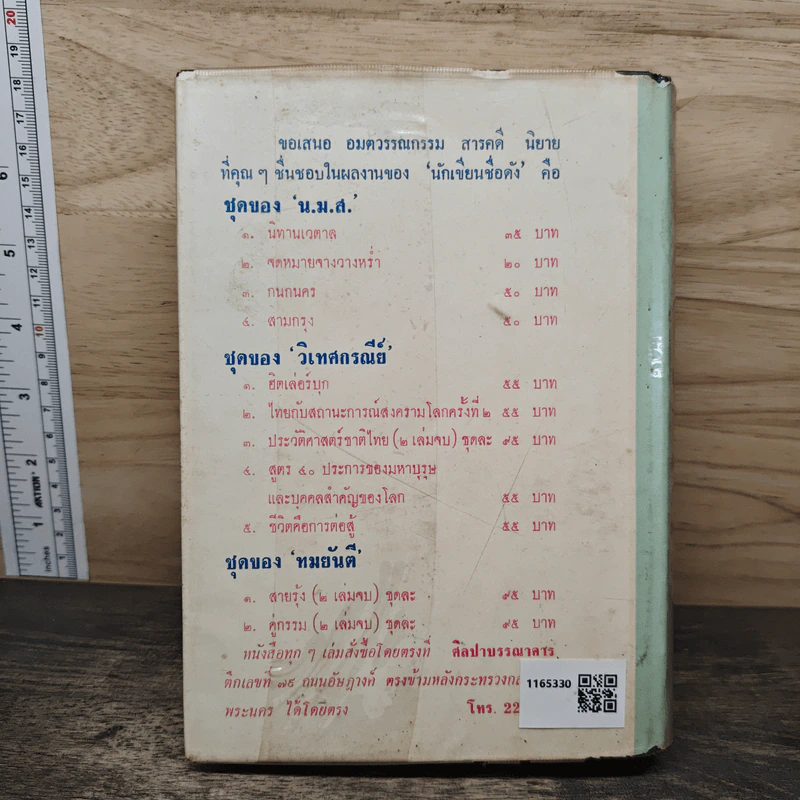 ขอเสนอ อมตวรรณกรรม สารคดี นิยาย
ที่คุณ ๆ ชื่นชอบในผลงานของ 'นักเขียนชื่อดัง' คือ
ชุดของ 'น.ม.ส.'
๑. นิทานเวตาล ๓๕ บาท
๒. จดหมายจางวางหร่ำ ๒๐ บาท
๓. กนกนคร ๕๐ บาท
๔. สามกรุง ๕๐ บาท
ชุดของ 'วิเทศกรณีย์'
๑. ฮิตเล่อร์บุก ๕๕ บาท
๒. ไทยกับสถานะการณ์สงครามโลกครั้งที่ ๒ ๕๕ บาท
๓. ประวัติศาสตร์ชาติไทย (๒ เล่มจบ) ชุดละ ๙๕ บาท
๔. สูตร ๔๐ ประการของมหาบุรุษ
และบุคคลสำคัญของโลก ๕๕ บาท
๕. ชีวิตคือการต่อสู้ ๕๕ บาท
ชุดของ 'ทมยันตี'
๑. สายรุ้ง (๒ เล่มจบ) ชุดละ ๙๕ บาท
๒. คู่กรรม (๒ เล่มจบ) ชุดละ ๙๕ บาท
หนังสือทุก ๆ เล่มสั่งซื้อโดยตรงที่ ศิลปาบรรณาคาร
ตึกเลขที่ ๗๙ ถนนอัษฎางค์ ตรงข้ามหลังกระทรวงกล
พระนคร ได้โดยตรง โทร. 22
1165330